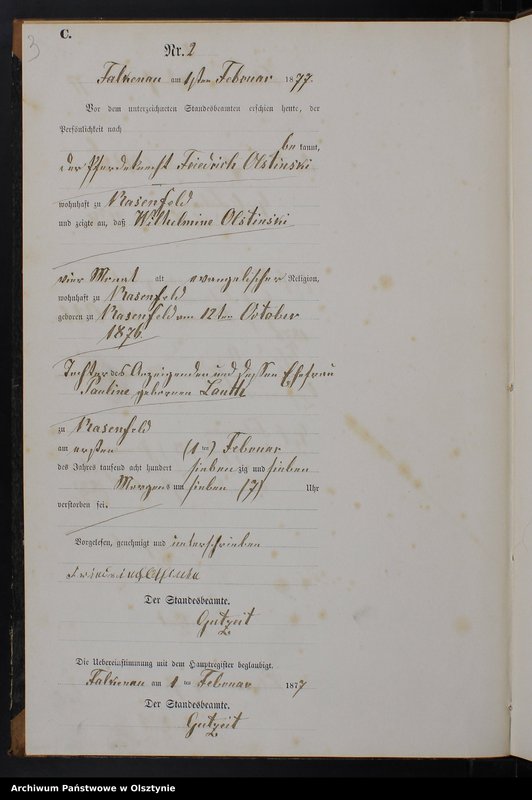 3
C.
Nr. 2
Falkenau am 1ten Februar 1877.
Vor dem unterzeichneten Standesbeamten erschien heute, der
Persönlichkeit nach
be kannt,
der Pferdeknecht Friedrich Olstinski
wohnhaft zu Rasenfeld
und zeigte an, daß Wilhelmine Olstinski
vier Monat alt evangelischer Religion,
wohnhaft zu Rasenfeld
geboren zu Rasenfeld am 12ten October
1876.
Tochter des Anzeigenden und dessen Ehefrau
Pauline geborenen
zu Rasenfeld
am ersten (1 ten) Februar
des Jahres tausend acht hundert sieben zig und sieben
Morgens um sieben (7) Uhr
verstorben sei.
Vorgelesen, genehmigt und unterschrieben
Der Standesbeamte.
Gutzeit
Die Uebereinstimmung mit dem Hauptregister beglaubigt.
Falkenau am 1 ten Februar 1877
Der Standesbeamte.
Gutzeit
Archiwum Państwowe w Olsztynie